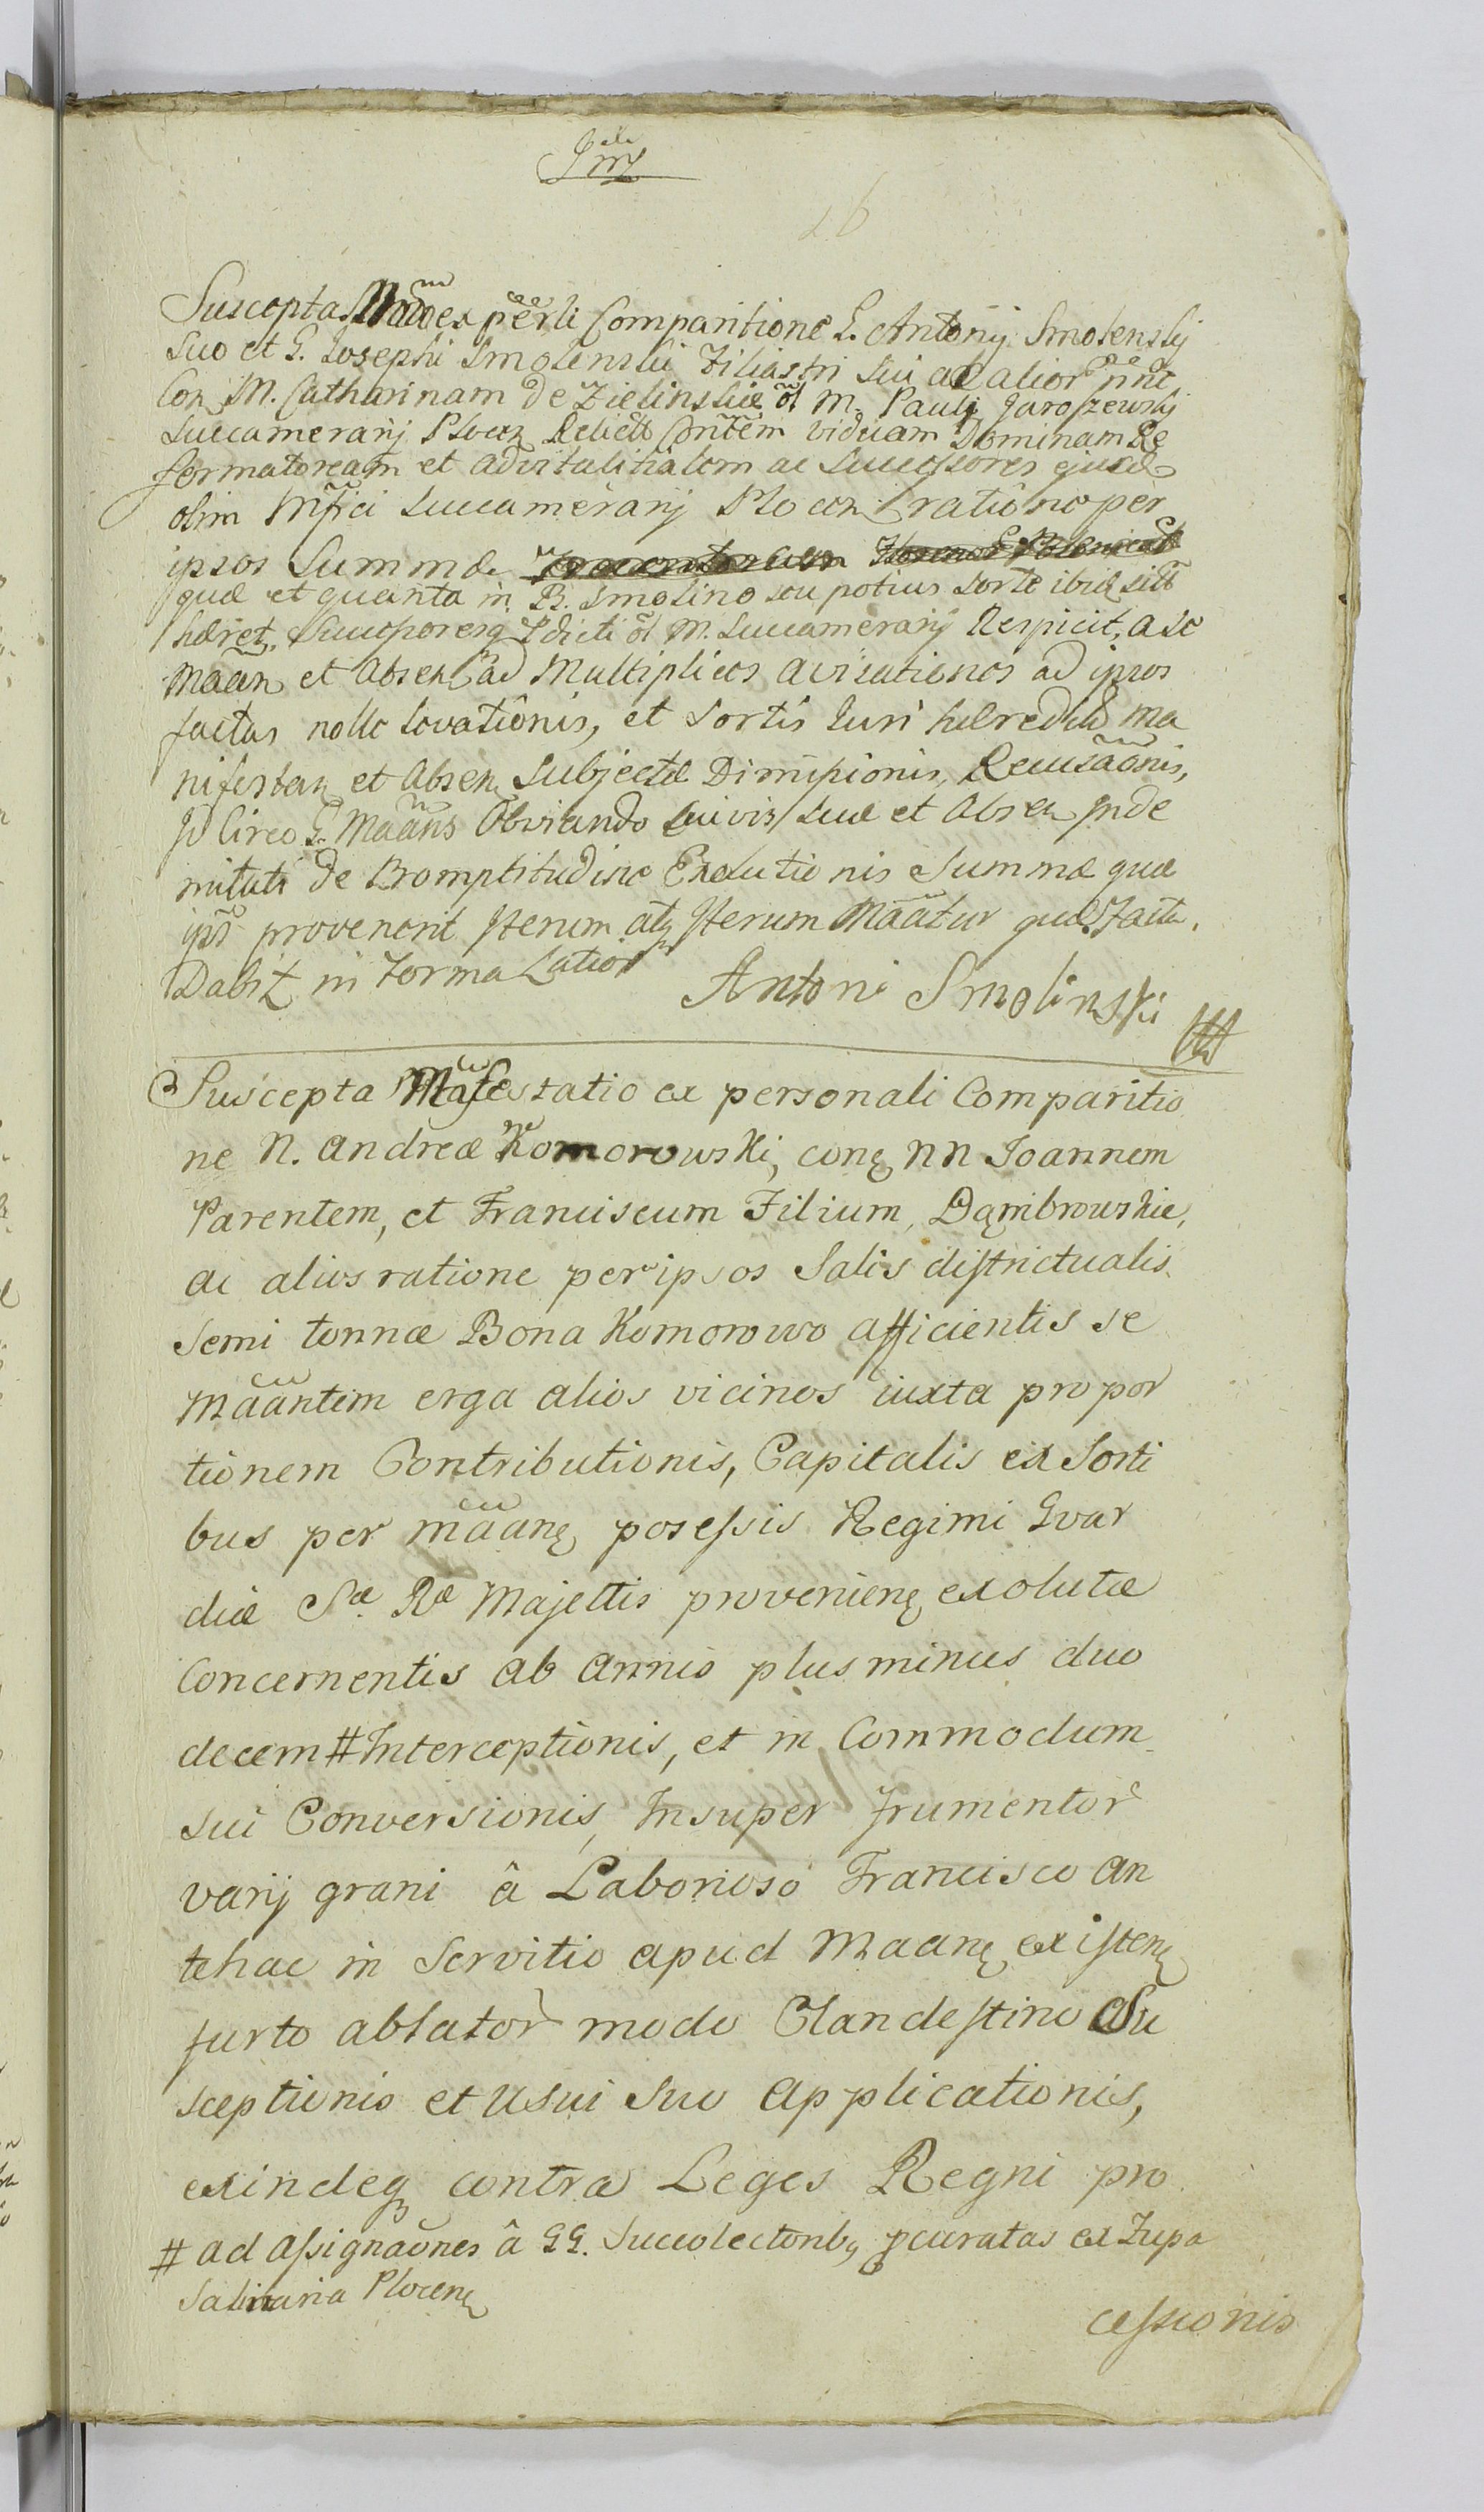 26
Suscepta Maõ ex perli Comparitione G. Antonij Smolenskij
suo et G. Josephi Smolenski Filiastri sui ac alior nne
Con M. Catharinam de Zielinskie ol M. Pauli Jaroszewskij
Succamerarij Plocen Relictõ Contem viduam Dominam Re
formatoream et advitalitialem ac Successores ejusd
olim Mfici Succamerarij Plocen ratione per
ipsos Summae
quae et quanta in B. Smolino seu potius sorte ibid sitt
haeret, Successoresq Pdicti ol M. Succamerarij Respicit, a se
Maan et Absen ad Multiplices avisationes ad ipsos
factas nolle levationis, et sortis Juri haeredit ma
nifestan et Absen Subjectae Dimissionis, Recusaonis,
Id circo G. Maans Obviando cuivis suae et Absen Inde
mitati de Promptitudine Exolutionis Summae quae
ipsi provenerit Iterum atq Iterum Maatur quae facta.
Dabit in Forma Latior
Antoni Smolinski
Suscepta Mafestatio ex personali Comparitio
ne N. Andreae Komorowski, conę NN Joannem
Parentem, et Franciscum Filium, Dąmbrowskie,
ac alios ratione per ipsos Salis districtualis
semi tonnae Bona Komorowo afficientis se
Maantem erga alios vicinos iuxta propor
tionem Contributionis, Capitalis ex Sorti
bus per maanę possessis Regimi Gvar
diae Sae Rae Majettis provenienę exolutae
Concernentis ab annis plus minus duo
decem # Interceptionis, et in Commodum
sui Conversionis, Insuper frumentor
varij grani â Laborioso Francisco an
tehac in Servitio apud Maanę existenę
furto ablator modo Clandestino Su
sceptionis et usui suo applicationis,
exindeq contra Leges Regni pro
# ad assignaones â GG. Succolectorib, pcuratas ex Zupa
Salinaria Plocenę
cessionis